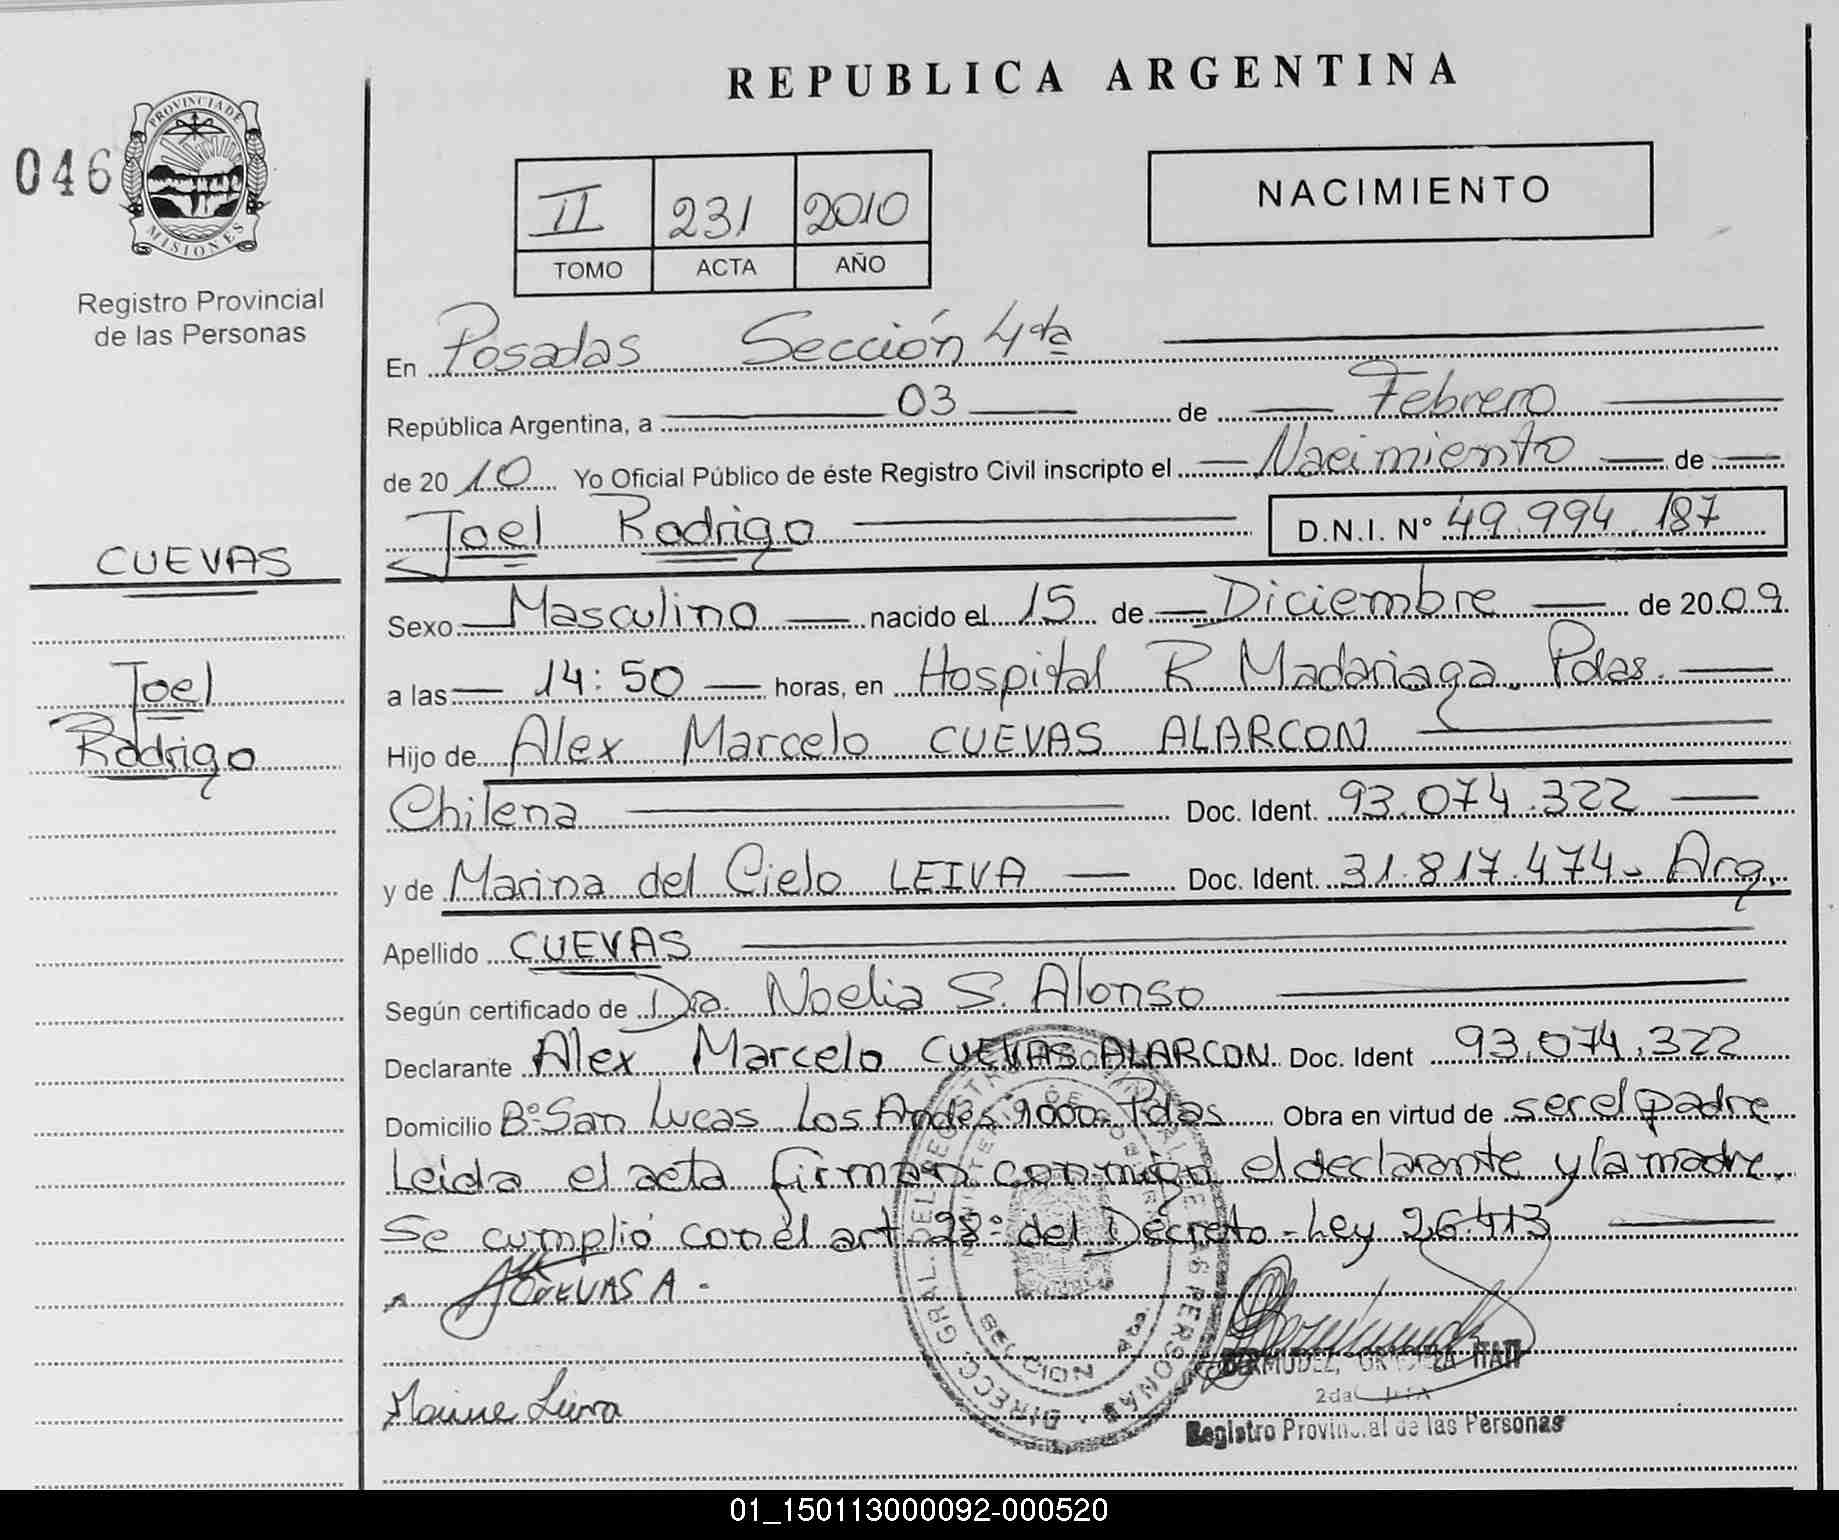 REPUBLICA ARGENTINA
046
PROVINCIA DE
MISIONES
Registro Provincial
de las Personas
II 231 2010
TOMO ACTA AÑO
NACIMIENTO
En Posadas Sección 4ta
República Argentina, a 03 de Febrero
de 2010 Yo Oficial Público de éste Registro Civil inscripto el Nacimiento de
Joel Rodrigo D.N.I. Nº 49.994.187
CUEVAS
Joel
Rodrigo
Sexo Masculino nacido el 15 de Diciembre de 2009.
a las 14:50 horas, en Hospital R Madariaga. Pdas.
Hijo de Alex Marcelo CUEVAS ALARCON
Chilena Doc. Ident. 93.074.322
y de Marina del Cielo LEIVA Doc. Ident. 31.817.474- Arg.
Apellido CUEVAS
Según certificado de Dra. Noelia S. Alonso
Declarante Alex Marcelo CUEVAS ALARCON Doc. Ident 93.074.322
Domicilio Bº San Lucas Los Andes 9000 Pdas Obra en virtud de ser el padre
Leida el acta firman conmigo el declarante y la madre.
Se cumplió con el art 28º del Decreto-Ley 26.413
CUEVAS A.
BERMUDEZ, ITATI
2da
Registro Provincial de las Personas
01_150113000092-000520